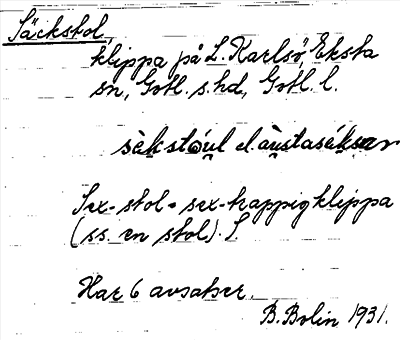 Säckstol,
klippa på L. Karlsö, Eksta
sn, Gotl. s. hd, Gotl. l.
sèkstóul el.
Sex-stol = sex-trappig klippa
(ss. en stol). S.
Har 6 avsatser.
B. Bolin 1931.